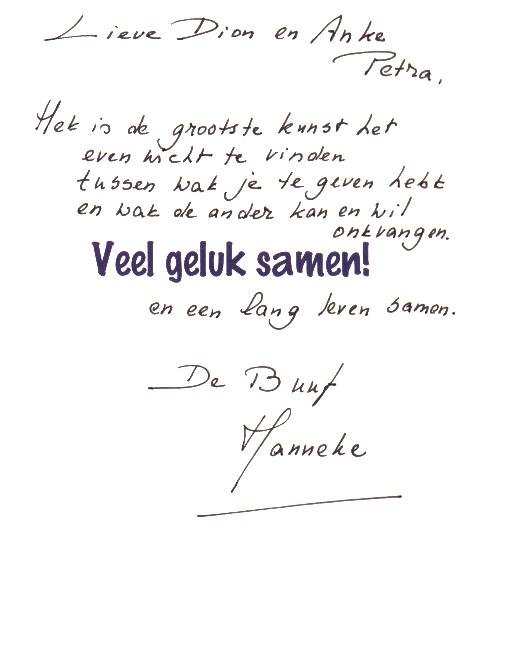 Lieve Dion en Anke
Petra,
Het is de grootste kunst het
even wicht te vinden
tussen wat je te geven hebt
en wat de ander kan en wil
ontvangen.
Veel geluk samen!
en een lang leven samen.
De Buuf
Hanneke